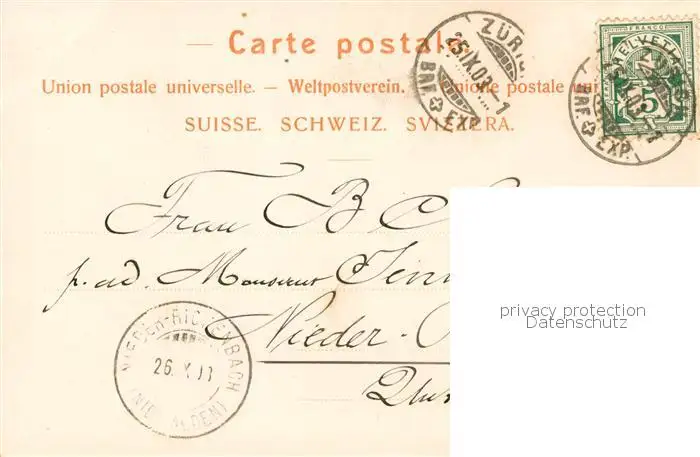 Carte postale
Union postale universelle. — Weltpostverein. — Unione postale
SUISSE. SCHWEIZ. SVIZZERA.
ZÜRI
25.IX.03.–1
BRF. EXP.
FRANCO
HELVETIA
5
BRF. EXP.
Frau B
p. ad. Monsieur
Nieder-
NIEDER-RICKENBACH
26. X
privacy protection
Datenschutz